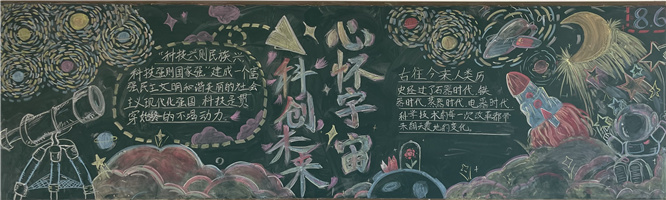 科技兴则民族兴
科技强则国家强。建成一个富
强民主文明和谐美丽的社会
主义现代化强国,科技是贯
穿始终的不竭动力。
心怀宇宙
科创未来
古往今来人类历
史经过了石器时代、铁
器时代、蒸器时代、电器时代
科学技术的每一次改革都带
来翻天覆地的变化。
186